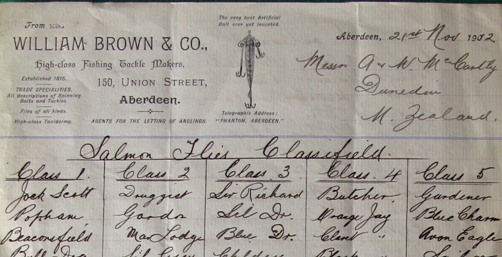 From
The very best Artificial
Bait ever yet invented.
WILLIAM BROWN & Co.,
High-class Fishing Tackle Makers,
150, UNION STREET,
Aberdeen.
Established 1815.
TRADE SPECIALITIES.
All descriptions of Spinning
Baits and Tackles.
Flies of all kinds.
High-class Taxidermy.
AGENTS FOR THE LETTING OF ANGLINGS.
Telegraphic Address:
"PHANTOM, ABERDEEN."
Aberdeen, 21st Nov 1912
Messrs A & W. McCarthy
Dunedin
N. Zealand.
Salmon Flies Classified.
Class 1. Class 2 Class 3 Class. 4 Class 5
Jock Scott Druggist Sir Richard Butcher. Gardener
Popham Gordon Sil Dr. Orange Jay Blue Charm
Beaconsfield Mar Lodge Blue Dr. Avon Eagle